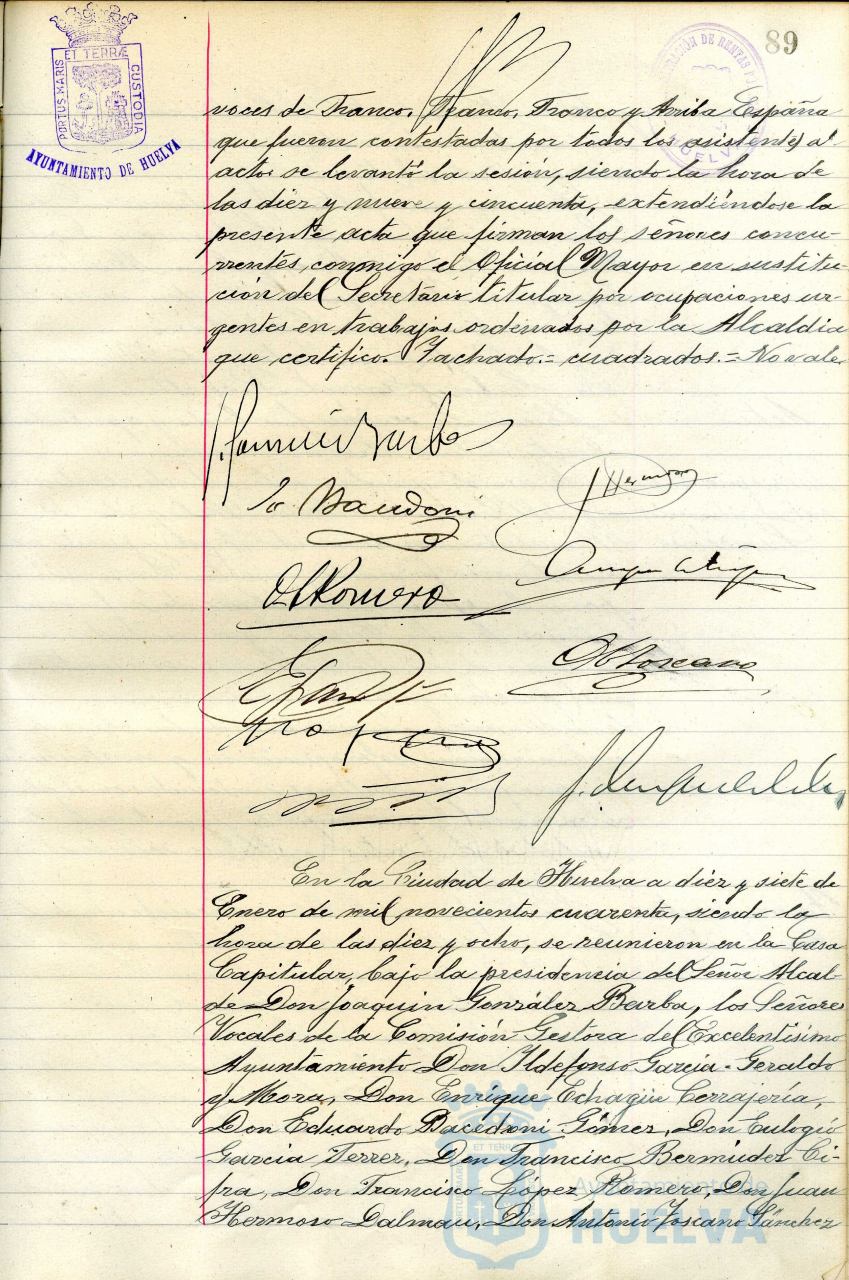 89
PORTUS MARIS
ET TERRÆ
CUSTODIA
AYUNTAMIENTO DE HUELVA
DE RENTAS
HUELVA
voces de Franco, Franco, Franco y Arriba España
que fueron contestadas por todos los asistentes al
acto, se levantó la sesión, siendo la hora de
las diez y nueve y cincuenta, extendiéndose la
presente acta que firman los señores concu-
rrentes, conmigo el Oficial Mayor en sustitu-
ción del Secretario titular por ocupaciones ur-
gentes en trabajos ordenados por la Alcaldia
que certifico. Tachado.= cuadrados.= No vale
J. Hermoso
Romero
Toscano
En la Ciudad de Huelva a diez y siete de
Enero de mil novecientos cuarenta, siendo la
hora de las diez y ocho, se reunieron en la Casa
Capitular, bajo la presidencia del Señor Alcal-
de Don Joaquin González Barba, los Señores
Vocales de la Comisión Gestora del Excelentísimo
Ayuntamiento Don Ildefonso Garcia-Geraldo
y Mora, Don Enrique Echagüe Cerrajería,
Don Eduardo Bacedoni Gómez, Don Eulogio
Garcia Ferrer, Don Francisco Bermudez Ci-
fra, Don Francisco López Romero, Don Juan
Hermoso Dalmau, Don Antonio Toscano Sánchez
ET TERRÆ
Ayuntamiento de
HUELVA